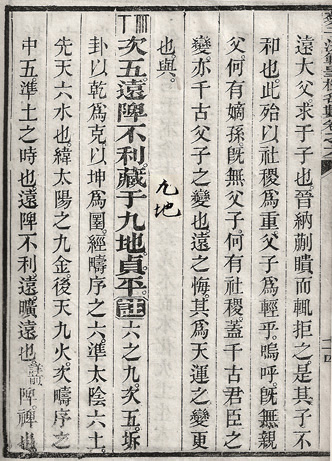 遠大父求于子也晉納蒯聵而輒拒之是其子不
和也此殆以社稷爲重父子爲輕乎嗚呼旣無親
父何有嫡孫旣無父子何有社稷蓋千古君臣之
變亦千古父子之變也遠之悔其爲天運之變更
也與
九地
次五遠陴不利藏于九地貞平註六之九次五坼
卦以乾爲克以坤爲圂經疇序之六準太陰六土
先天六水也緯太陽之九金後天九火次疇序之
中五準土之時也遠陴不利遠曠遠也詳前陴裨也